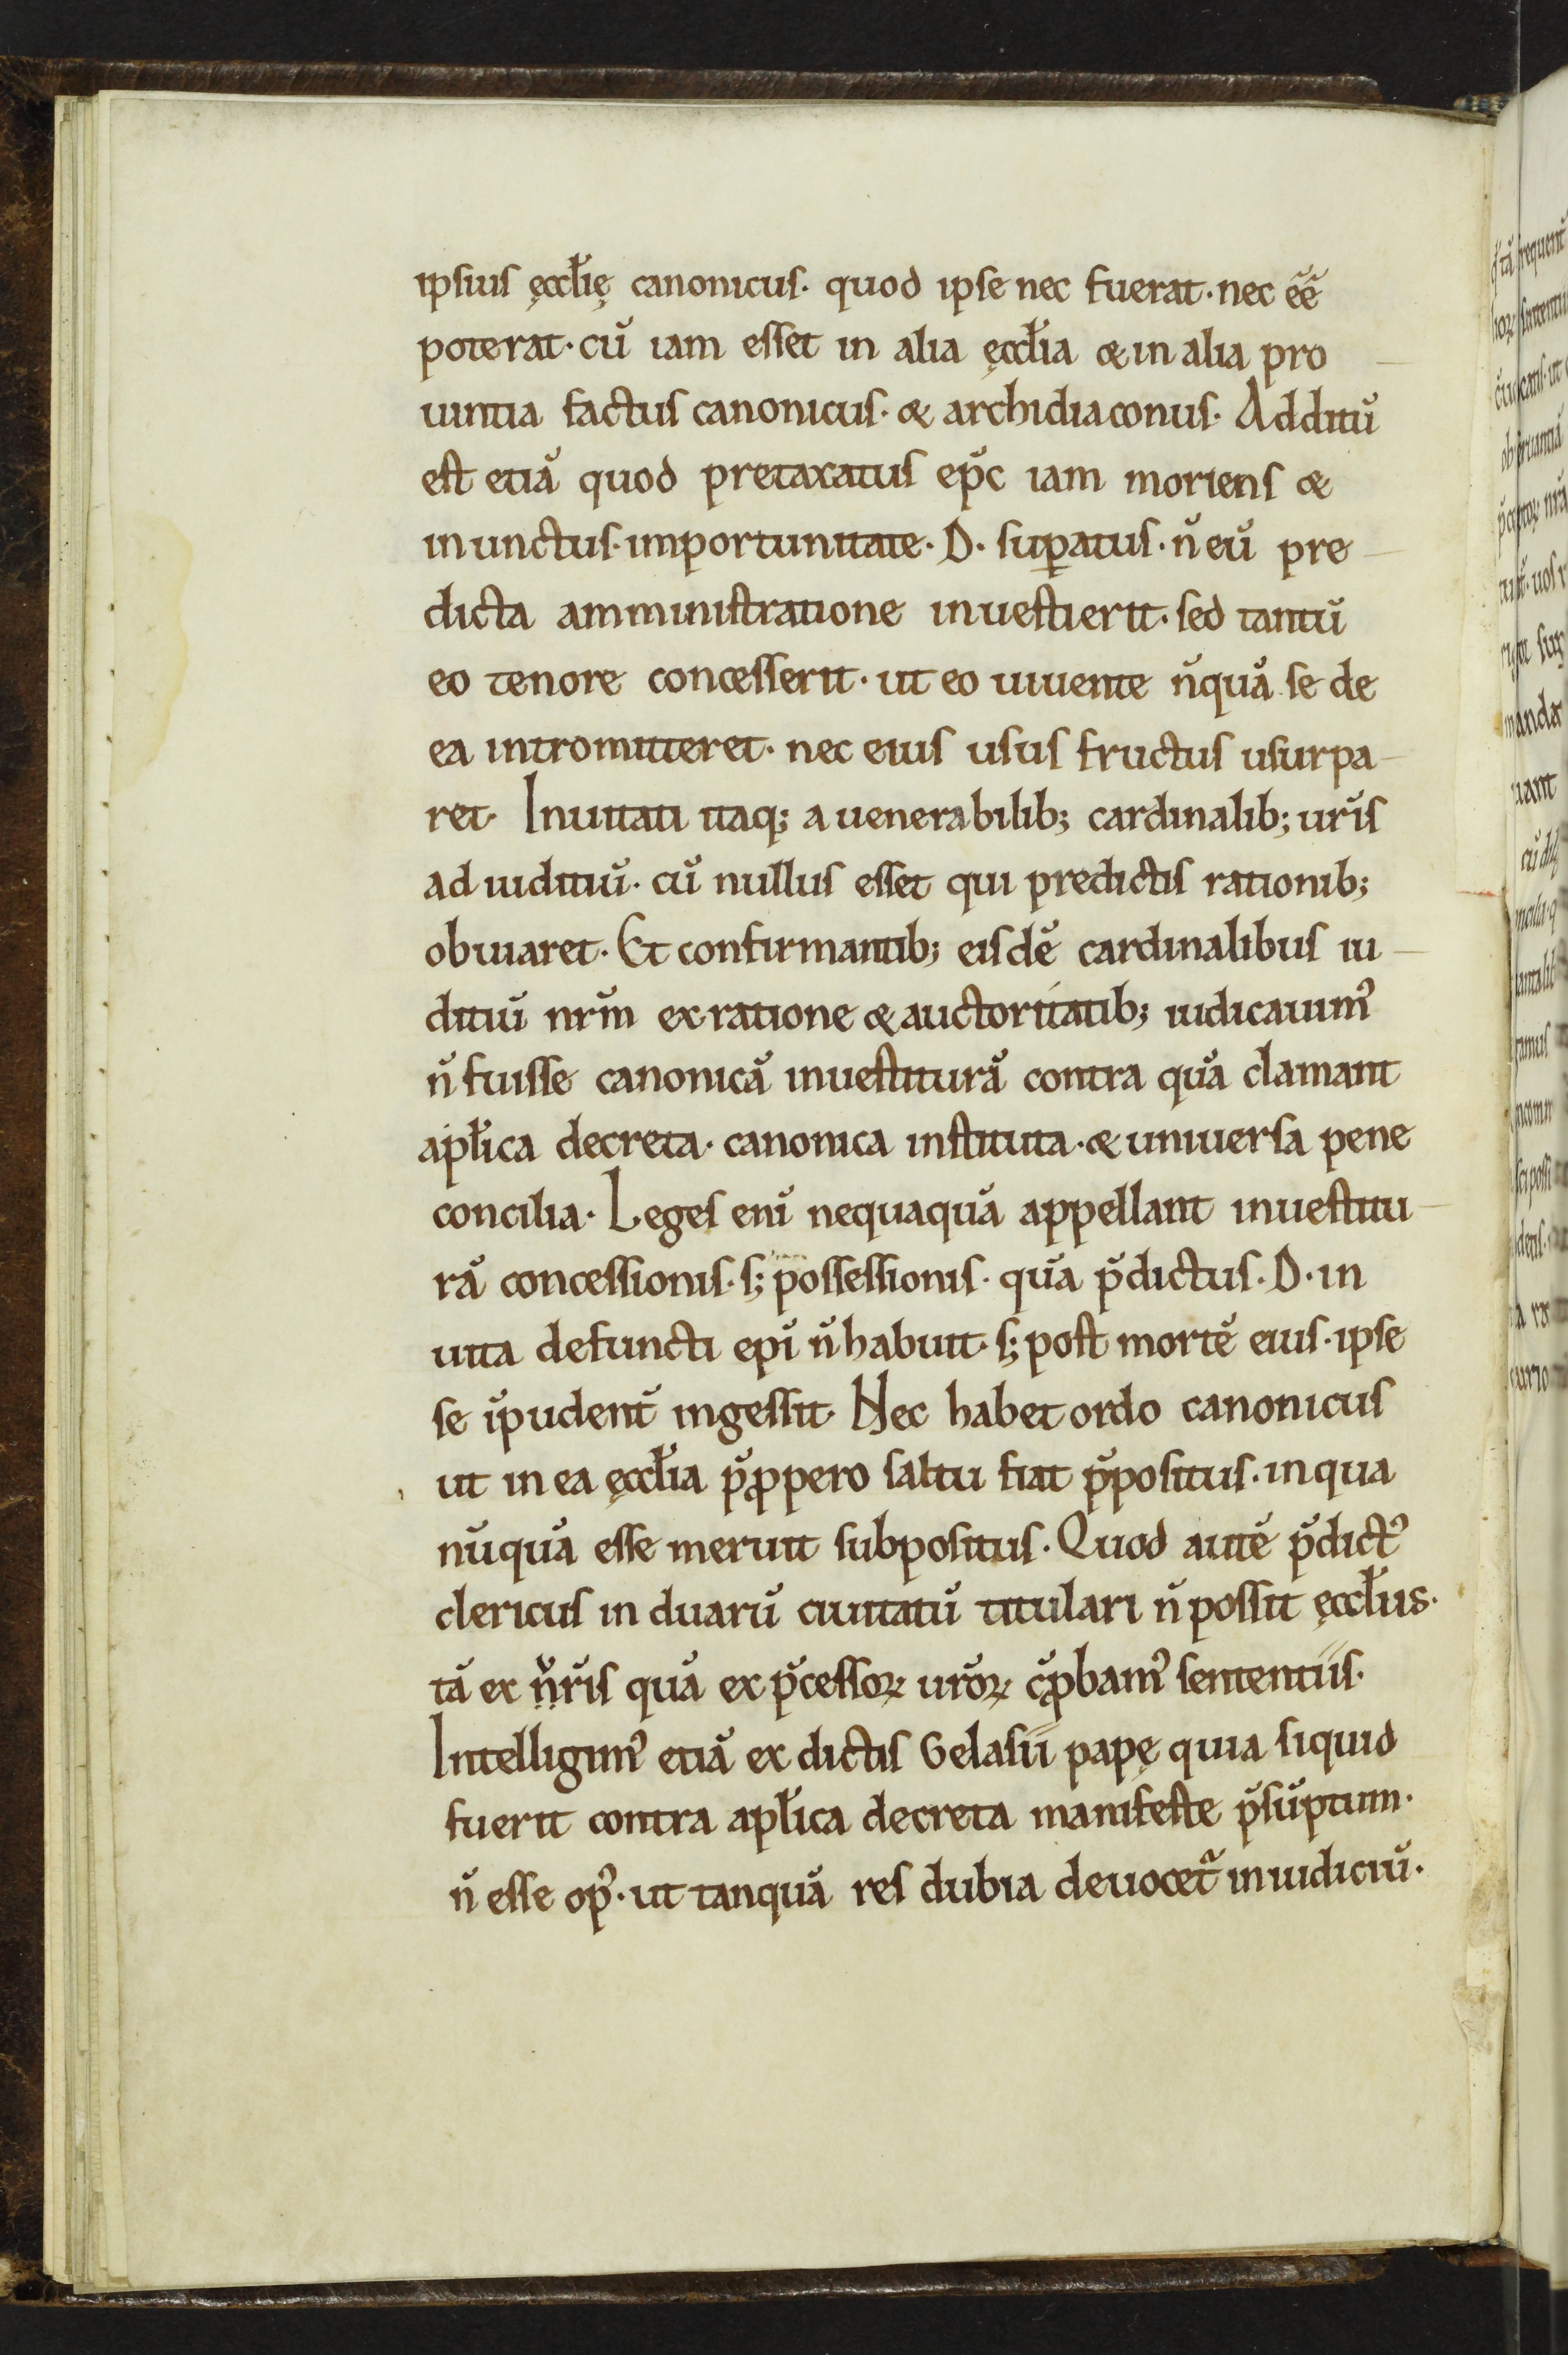 ipsius ęccłię canonicus. quod ipse nec fuerat. nec ee̅
poterat. cū iam esset in alia ęccłia & in alia pro
uintia factus canonicus. & archidiaconus. Additū
est etiā quod pretaxatus ep̅c iam moriens &
inunctus. importunitate. D. suꝑatus. n̅ eū pre
dicta amministratione inuestierit. sed tantū
eo tenore concesserit. ut eo uiuente n̅quā se de
ea intromitteret. nec eius usus fructus usurpa
ret. Inuitati itaq; a uenerabilib; cardinalib; ur̅is
ad iuditiū. cū nullus esset qui predictis rationib;
obuiaret. Et confirmantib; eisdē cardinalibus iu
ditiū nr̅m ex ratione & auctoritatib; iudicauim᾿
n̅ fuisse canonicā inuestiturā contra quā clamant
apłica decreta. canonica instituta. & uniuersa pene
concilia. Leges eni̅ nequaquā appellant inuestitu
rā concessionis. s; possessionis. quā p̅dictus. D. in
uita defuncti epi̅ n̅ habuit. s; post mortē eius. ipse
se i̅pudent̅ ingessit. Nec habet ordo canonicus
ut in ea ęccłia p̅ꝓpero saltu fiat p̅positus. in qua
nūquā esse meruit subpositus. Quod autē p̅dict᾿
clericus in duarū ciuitatū titulari n̅ possit ęccłiis.
tā ex n̅r̅is quā ex p̅cessoꝝ ur̅oꝝ c̅ꝓbam᾿ sententiis.
Intelligim᾿ etiā ex dictis Gelasii papę quia siquid
fuerit contra apłica decreta manifeste p̅sūptum.
n̅ esse op᾿. ut tanquā res dubia deuocet̅ in iudiciū.